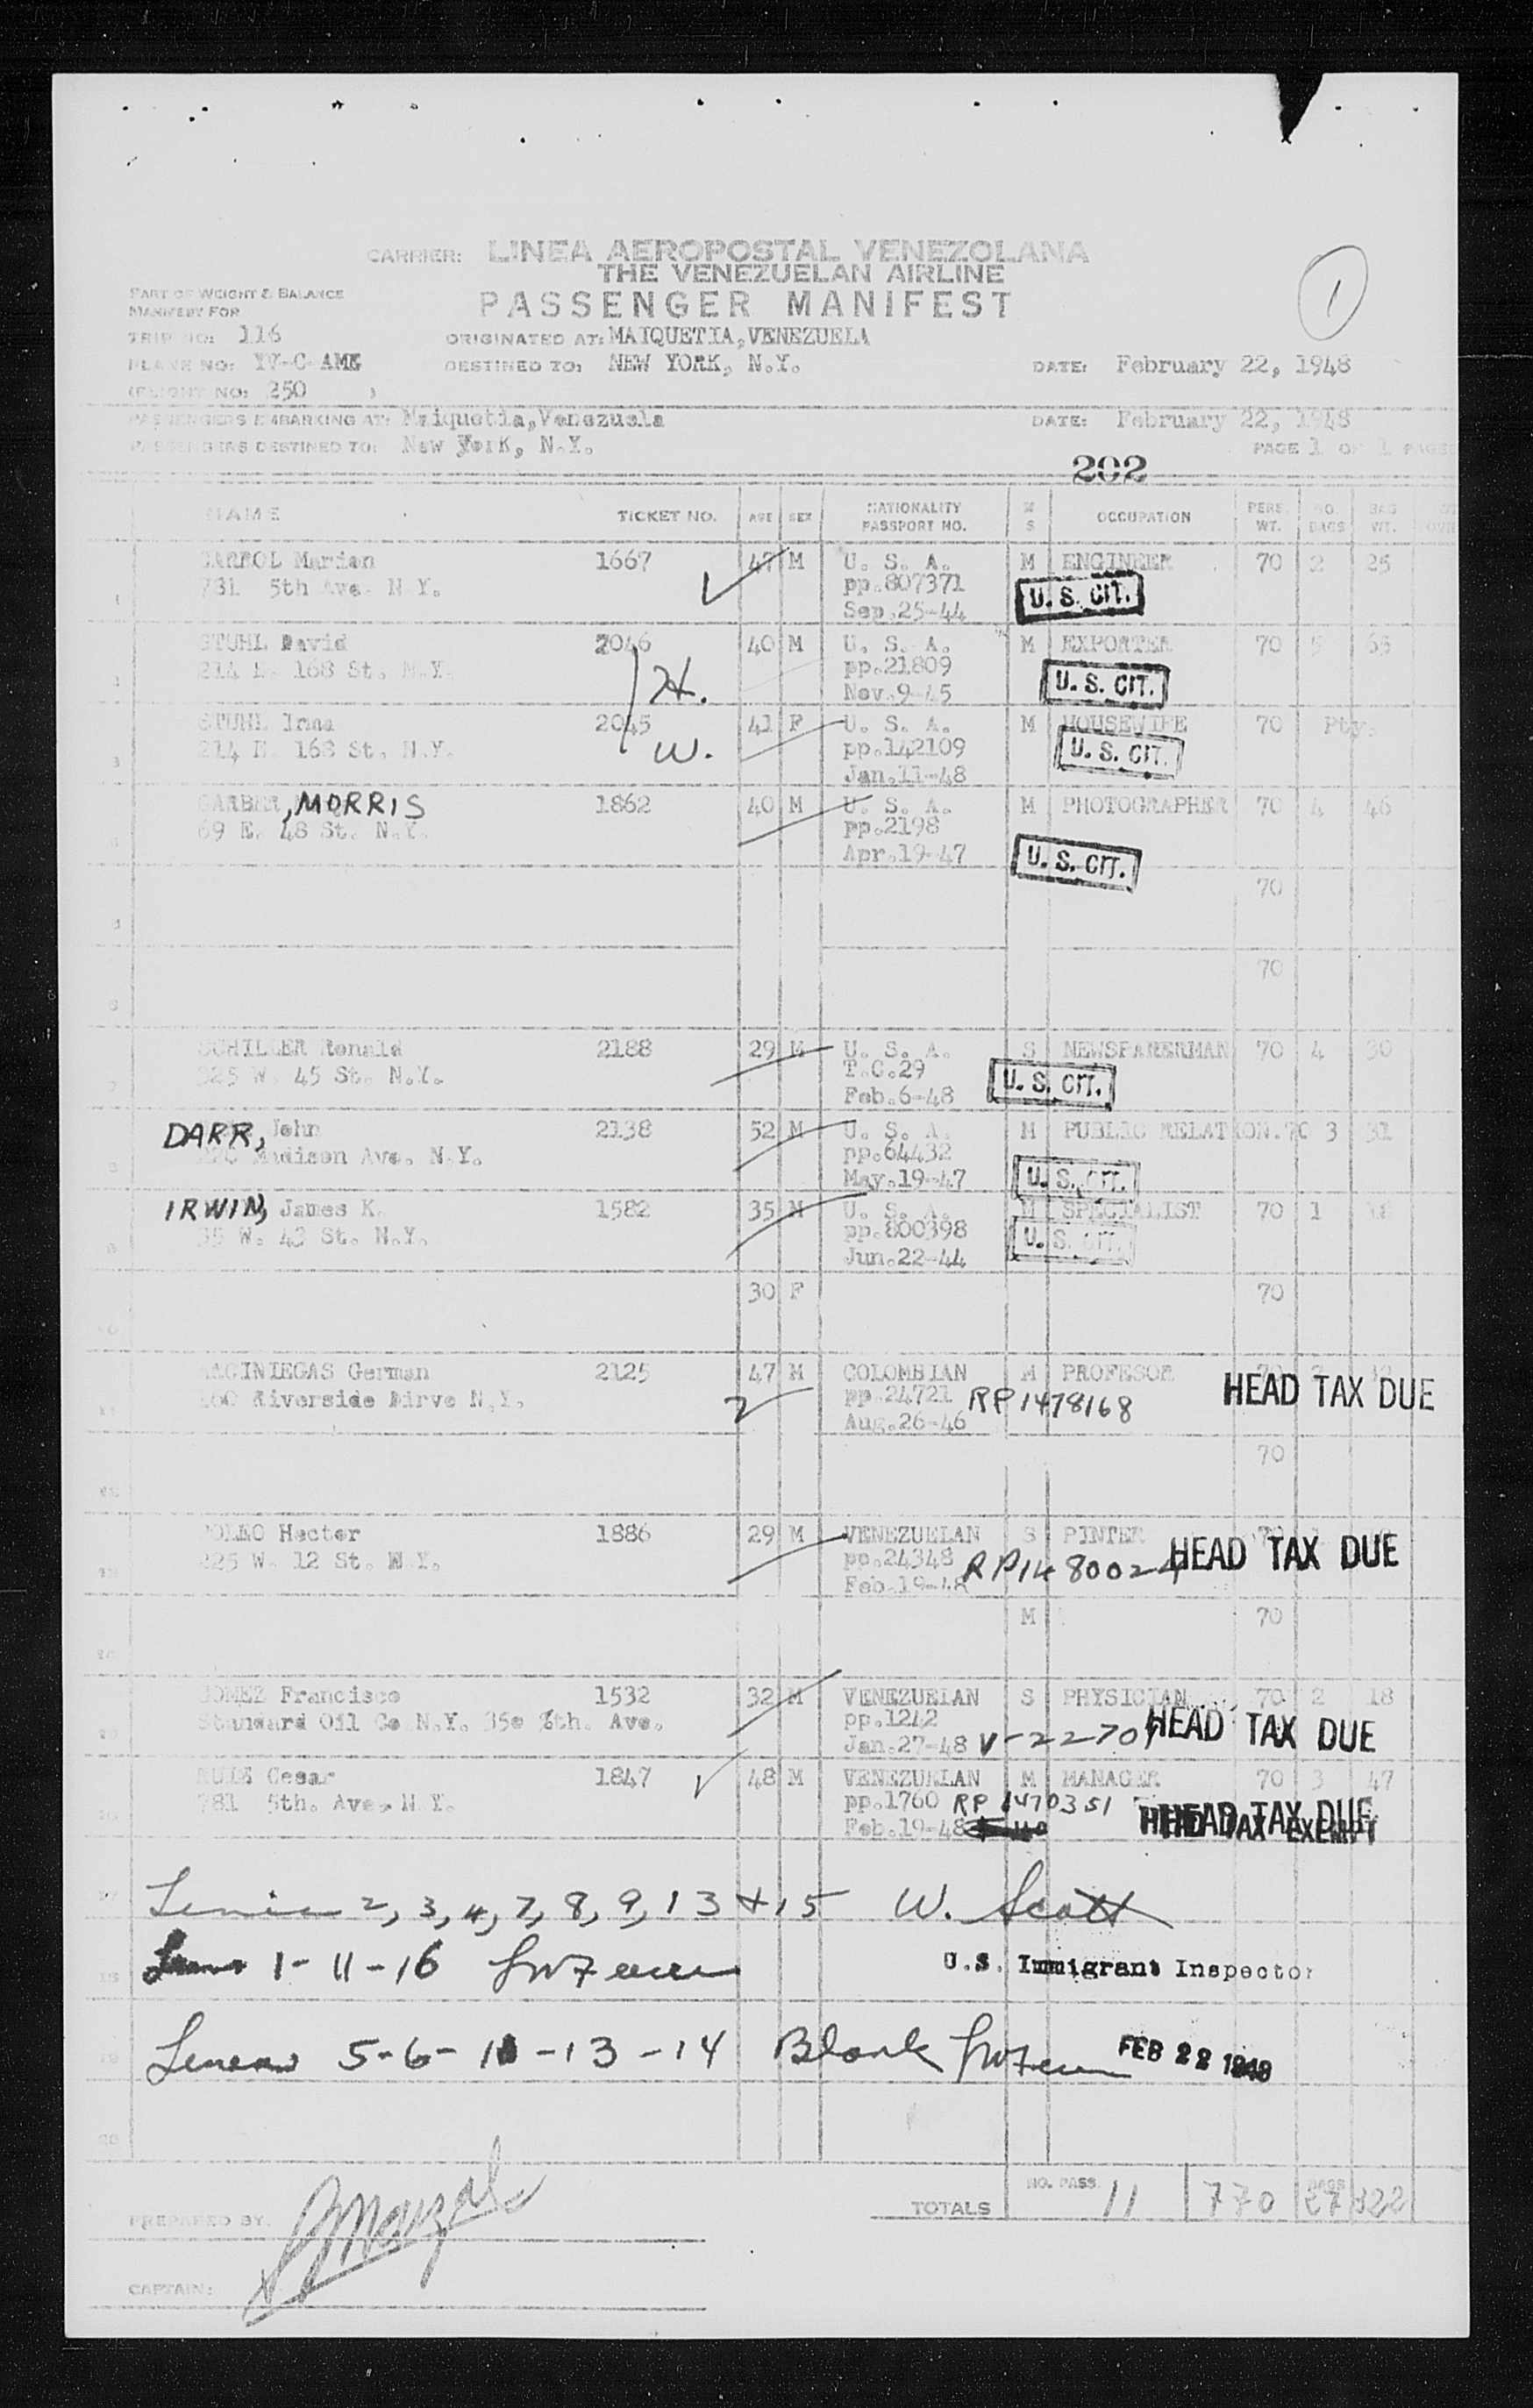 CARRIER: LINEA AEROPOSTAL VENEZOLANA
THE VENEZUELAN AIRLINE
PASSENGER MANIFEST
1
PART OF WEIGHT & BALANCE
MANIFEST FOR
TRIP NO: 116
ORIGINATED AT: MAIQUETIA, VENEZUELA
PLANE NO: YV-C-AME
DESTINED TO: NEW YORK, N.Y.
DATE: February 22, 1948
(FLIGHT NO: 250 )
PASSENGERS EMBARKING AT: Maiquetia,Venezuela
DATE: February 22, 1948
PASSENGERS DESTINED TO: New York, N.Y.
PAGE 1 OF 1 PAGES
202
NAME TICKET NO. AGE SEX NATIONALITY PASSPORT NO. M S OCCUPATION PERS. WT. NO. BAGS BAG WT.
Marian 1667 47 M U. S. A. M ENGINEER 70 2 25
781 5th Ave. N.Y. pp.807371 U. S. CIT.
1 Sep.25-44
STUHL David 2046 40 M U. S. A. M EXPORTER 70 5 65
214 E. 168 St. N.Y. H. pp.21809 U. S. CIT.
Nov.9-45
STUHL Irma 2045 41 F U. S. A. M HOUSEWIFE 70 Pty.
214 E. 168 St. N.Y. W. pp.142109 U. S. CIT.
3 Jan.11-48
GARBER, MORRIS 1862 40 M U. S. A. M PHOTOGRAPHER 70 4 46
69 E. 48 St. N.Y. pp.2198
Apr.19-47 U. S. CIT.
70
70
6
SCHILLER Ronald 2188 29 M U. S. A. S NEWSPAPERMAN 70 4 30
325 W. 45 St. N.Y. T.C.29 U. S. CIT.
7 Feb.6-48
DARR, John 2138 52 M U. S. A. M PUBLIC RELATION. 70 3 31
Madison Ave. N.Y. pp.64432
May.19-47 U. S. CIT.
IRWIN, James K. 1582 35 M U. S. A. M SPECIALIST 70 1
35 W. 43 St. N.Y. pp.800398 U. S. CIT.
Jun.22-44
30 F 70
ARCINIEGAS German 2125 47 M COLOMBIAN M PROFESOR 70
Riverside Dirve N.Y. pp.24721 RP1478168 HEAD TAX DUE
Aug.26-46
70
POLEO Hector 1886 29 M VENEZUELAN S PINTER 70 HEAD TAX DUE
225 W. 12 St. N.Y. pp.24348 RP1480024
Feb.19-48
M 70
GOMEZ Francisco 1532 32 M VENEZUELAN S PHYSICIAN 70 2 18
Standard Oil Co N.Y. 35e 6th. Ave. pp.1242 HEAD TAX DUE
Jan.27-48 V-22707
RUIZ Cesar 1847 48 M VENEZUELAN M MANAGER 70 3 47
781 5th. Ave. N.Y. pp.1760 RP 1470351 HEAD TAX DUE
Feb.19-48 HEAD TAX EXEMPT
2, 3, 4, 7, 8, 9, 13 + 15 W. Scott
1-11-16
U.S. Immigrant Inspector
5-6-10-13-14 Blank
FEB 22 1948
TOTALS NO. PASS. 11 770 BAGS 27 322
PREPARED BY:
CAPTAIN: